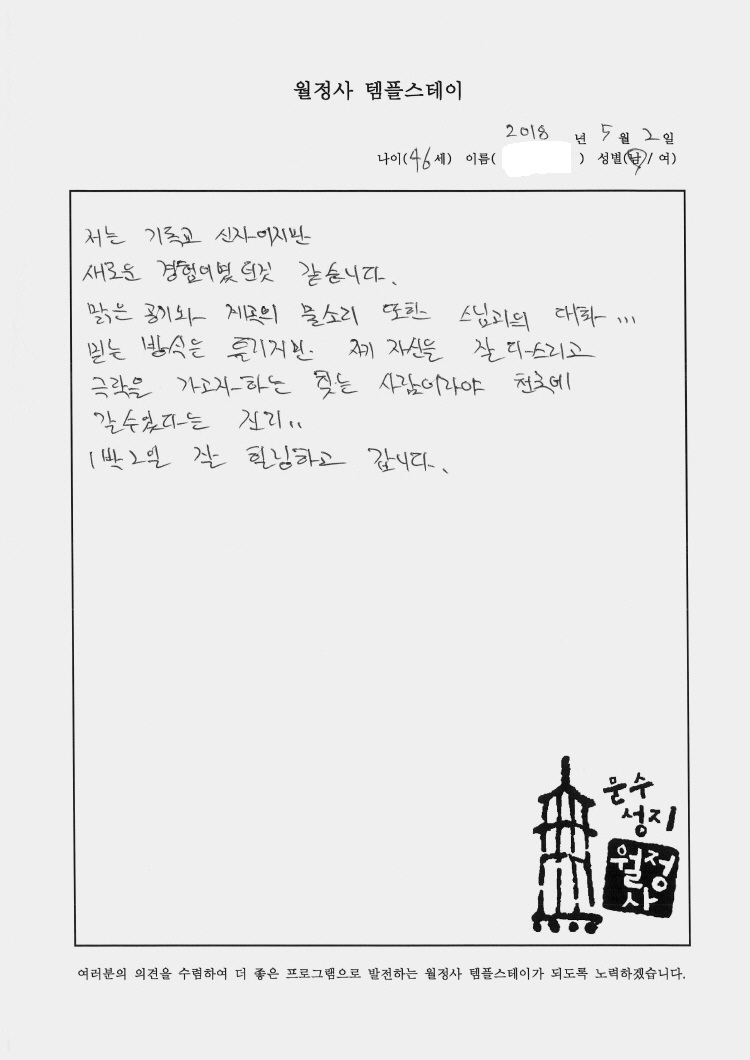 월정사 템플스테이
2018 년 5 월 2 일
나이(46세) 이름( ) 성별(남/ 여)
저는 기독교 신자이지만
새로운 경험이였던것 같습니다.
맑은 공기와 계곡의 물소리 또한 스님과의 대화...
믿는 방식은 틀리지만. 제 자신을 잘 다스리고
극락을 가고자 하는 찾는 사람이라야 천국에
갈수있다는 진리..
1박2일 잘 힐링하고 갑니다.
문수
성지
월정
사
여러분의 의견을 수렴하여 더 좋은 프로그램으로 발전하는 월정사 템플스테이가 되도록 노력하겠습니다.